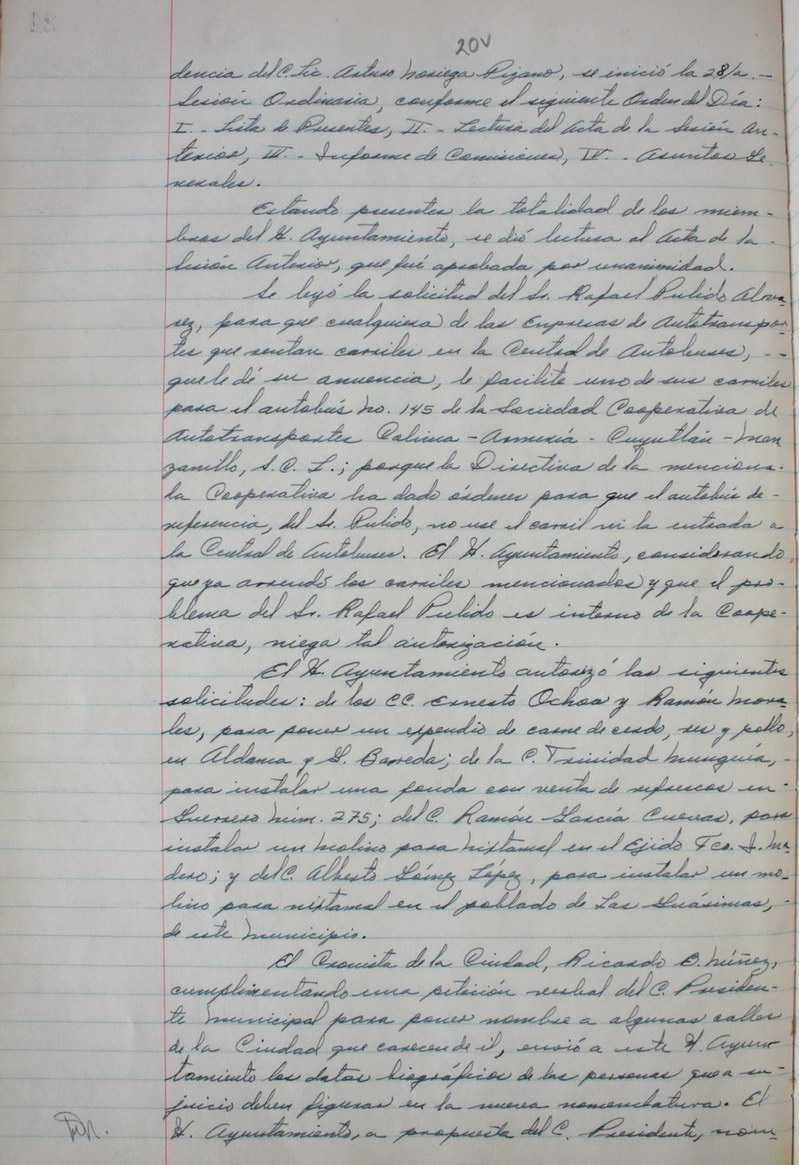 20v
dencia del C. Lic. Arturo Noriega Pizano, se inició la 28/a. -
Sesión Ordinaria, conforme el siguiente Orden del Día:
I. - Lista de Presentes, II. - Lectura del Acta de la Sesión An-
terior, III. - Informe de Comisiones, IV. - Asuntos Ge-
nerales.
Estando presentes la totalidad de los miem-
bros del H. Ayuntamiento, se dió lectura al Acta de la -
Sesión Anterior, que fué aprobada por unanimidad.
Se leyó la solicitud del Sr. Rafael Pulido Alva-
rez, para que cualquiera de las Empresas de Autotranspor-
tes que rentan carriles en la Central de Autobuses, - -
que le dé su anuencia, le facilite uno de sus carriles
para el autobús No. 145 de la Sociedad Cooperativa de
Autotransportes Colima - Armería - Cuyutlán - Man
zanillo, S.C.L.; porque la Directiva de la menciona-
da Cooperativa ha dado órdenes para que el autobús de -
referencia, del Sr. Pulido, no use el carril ni la entrada a
la Central de Autobuses. El H. Ayuntamiento, considerando
que ya arrendó los carriles mencionados y que el pro-
blema del Sr. Rafael Pulido es interno de la Coope-
rativa, niega tal autorización.
El H. Ayuntamiento autorizó las siguientes
solicitudes: de los CC. Ernesto Ochoa y Ramón Mora-
les, para poner un expendio de carne de cerdo, res y pollo,
en Aldama y G. Barreda; de la C. Trinidad Munguía, -
para instalar una fonda con venta de refrescos en -
Guerrero Núm. 275; del C. Ramón García Cuevas, para
instalar un Molino para Nixtamal en el Ejido Fco. I. Ma-
dero; y del C. Alberto Gómez López, para instalar un mo-
lino para nixtamal en el poblado de Las Guásimas, -
de este Municipio.
El Cronista de la Ciudad, Ricardo B. Núñez,
cumplimentando una petición verbal del C. Presiden-
te Municipal para poner nombre a algunas calles
de la Ciudad que carecen de él, envió a este H. Ayun-
tamiento los datos biográficos de las personas que a su -
juicio deben figurar en la nueva nomenclatura. El
H. Ayuntamiento, a propuesta del C. Presidente, nom-